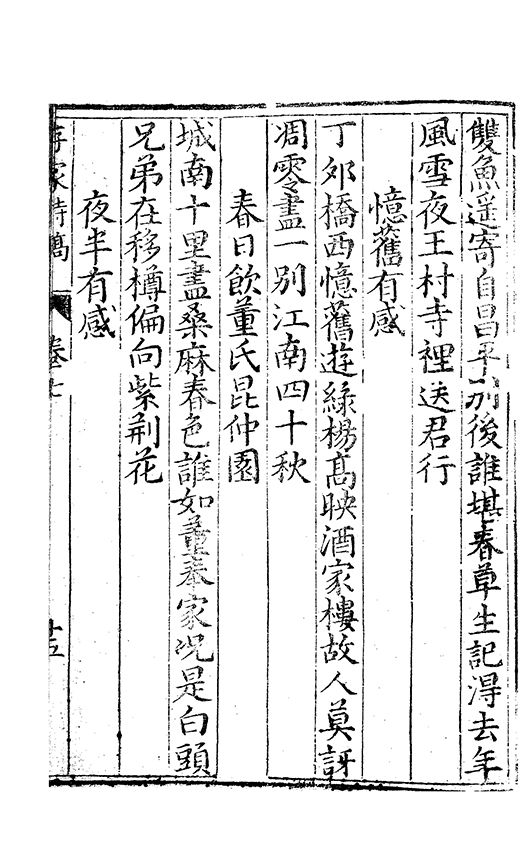 雙魚遥寄自昌平別後誰堪春草生記得去年
風雪夜王村寺裡送君行
憶舊有感
丁邜橋西憶舊遊緑楊髙映酒家樓故人莫訝
凋零盡一别江南四十秋
春日飲董氏昆仲園
城南十里盡桑麻春色誰如董奉家况是白頭
兄弟在移樽偏向紫荆花
夜半有感
詩
卷七
十五